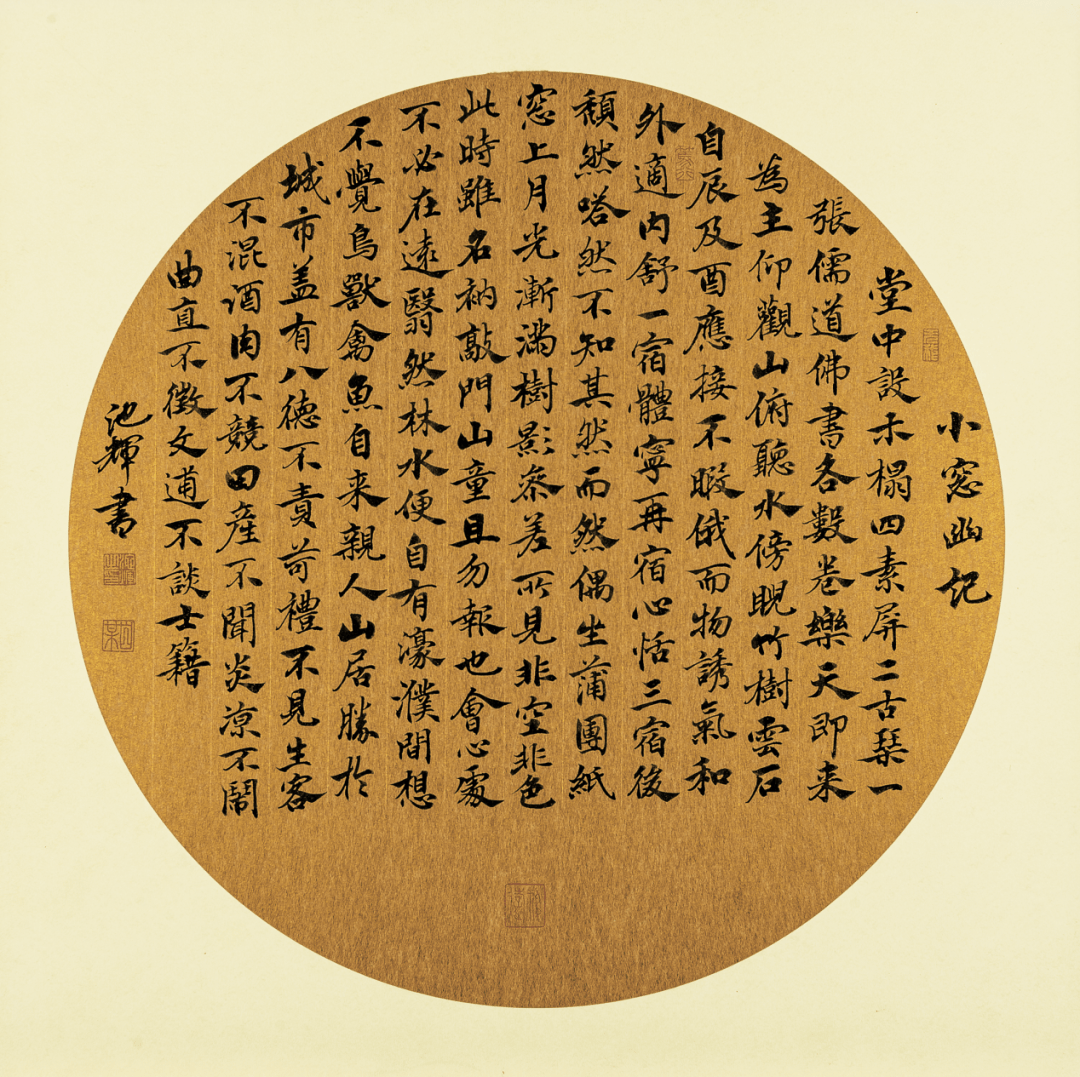 小窓幽記
堂中設木榻四素屏二古琹一
張儒道佛書各數卷樂天即来
為主仰觀山俯聽水傍睨竹樹雲石
自辰及酉應接不暇俄而物誘氣和
外適内舒一宿體寧再宿心恬三宿後
頹然嗒然不知其然而然偶坐蒲團紙
窓上月光漸滿樹影叅差所見非空非色
此時雖名衲敲門山童且勿報也會心處
不必在遠翳然林水便自有濠濮間想
不覺鳥獸禽魚自来親人山居勝於
城市盖有八德不責苛禮不見生客
不混酒肉不競田產不聞炎凉不鬧
曲直不徵文逋不談士籍
池輝書